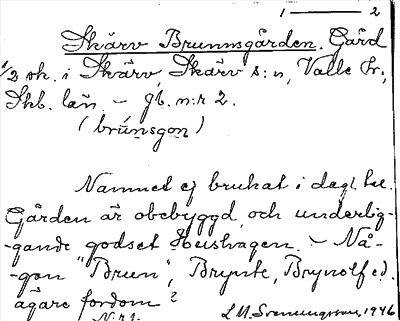 1 — 2
Skärv Brunnsgården. Gård
1/2 sk. i Skärv, Skärv s:n, Valle hr.,
Skb. län. – jb. n:r 2.
(brúnsgon)
Namnet ej brukat i dagl. tal.
Gården är obebyggd och underlig-
-gande godset Heushagen. – Nå-
-gon "Brun", Brynte, Brynolf ed.
ägare fordom?
N:r 1. L M. Svenungsson, 1946